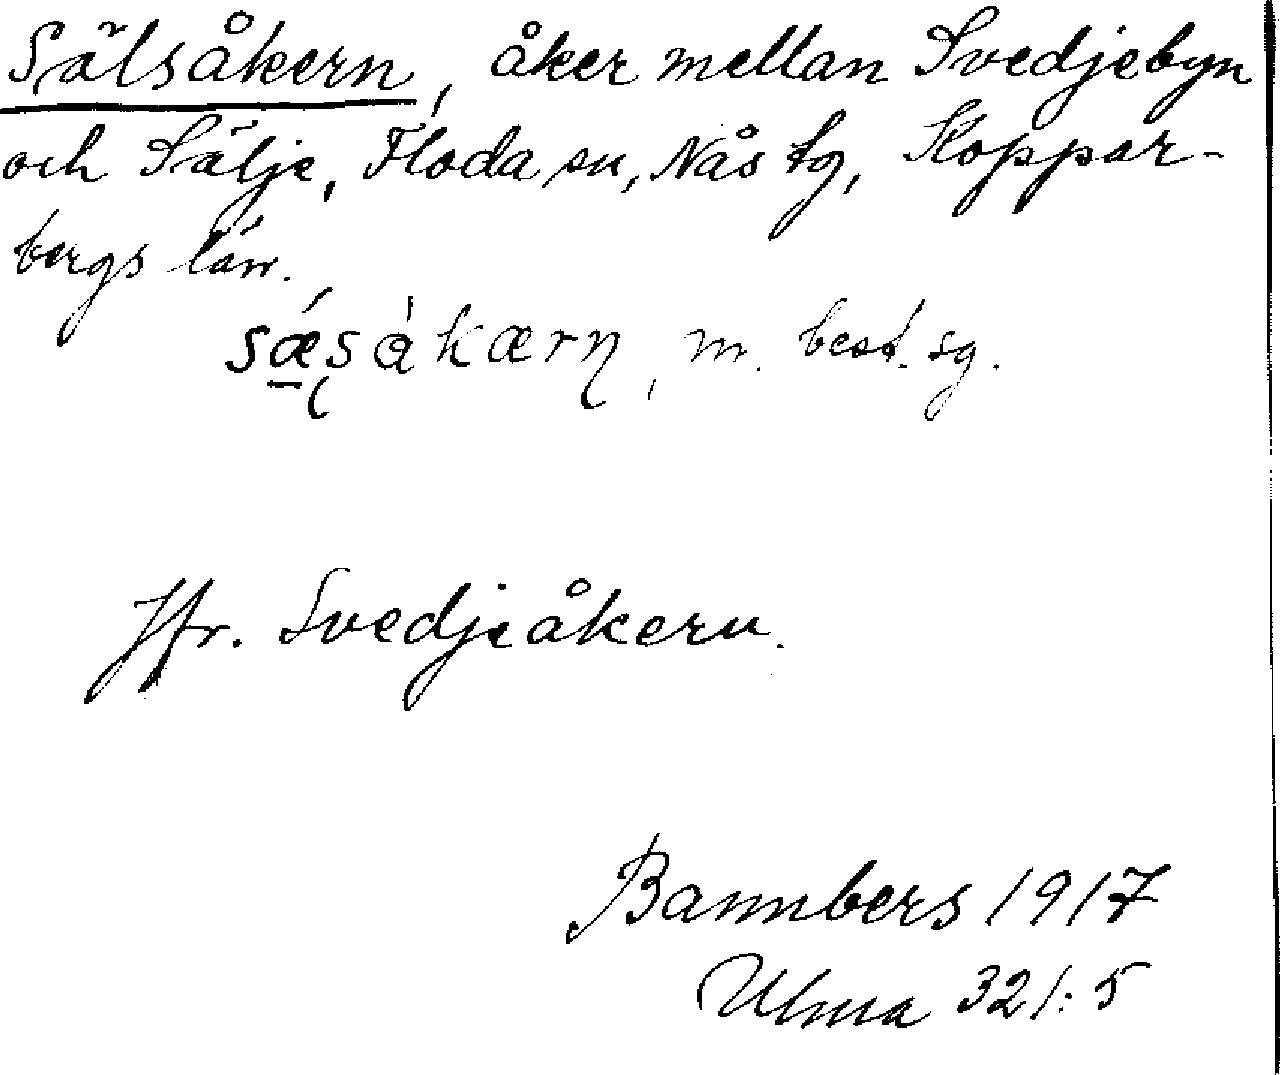 Sälsåkern, åker mellan Svedjebyn
och Sälje, Floda sn, Nås tg, Koppar-
bergs län.
sǽsåkærn, m. best. sg.
Jfr. Svedjeåkern.
Bannbers 1917
Ulma 321:5